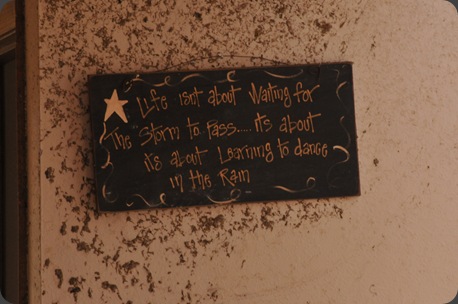 Life isnt about Waiting for
The "Storm to Pass..... it's about
it's about Learning to dance
in the Rain